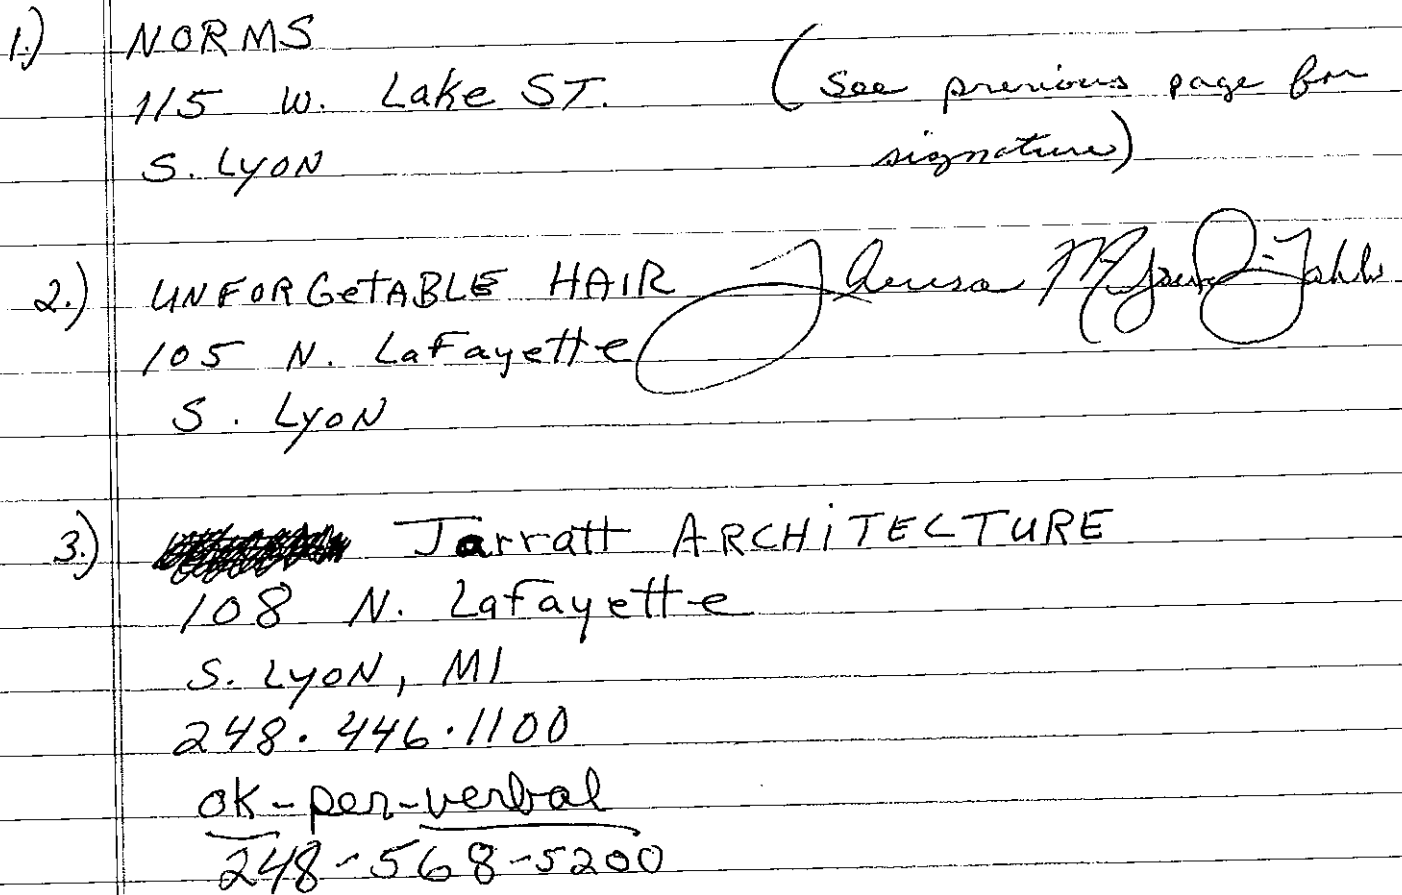 1.) NORMS
115 W. Lake ST. (See previous page for
S. LYON signature)
2.) UNFORGetABLE HAIR
105 N. LaFayette
S. LYON
3.) Jarratt ARCHiTECTURE
108 N. LaFayette
S. LYON, MI
248.446.1100
ok-per-verbal
248-568-5200